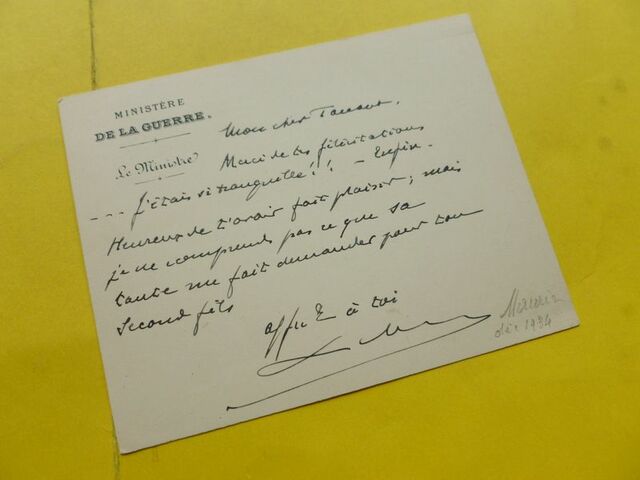 MINISTÈRE
DE LA GUERRE.
Le Ministre
Mon cher
Merci de tes félicitations
--- J'étais si tranquille!! - Enfin.
Heureux de t'avoir fait plaisir; mais
je ne comprends pas ce que sa
tante me fait demander pour ton
second fils
à toi
déc 1934